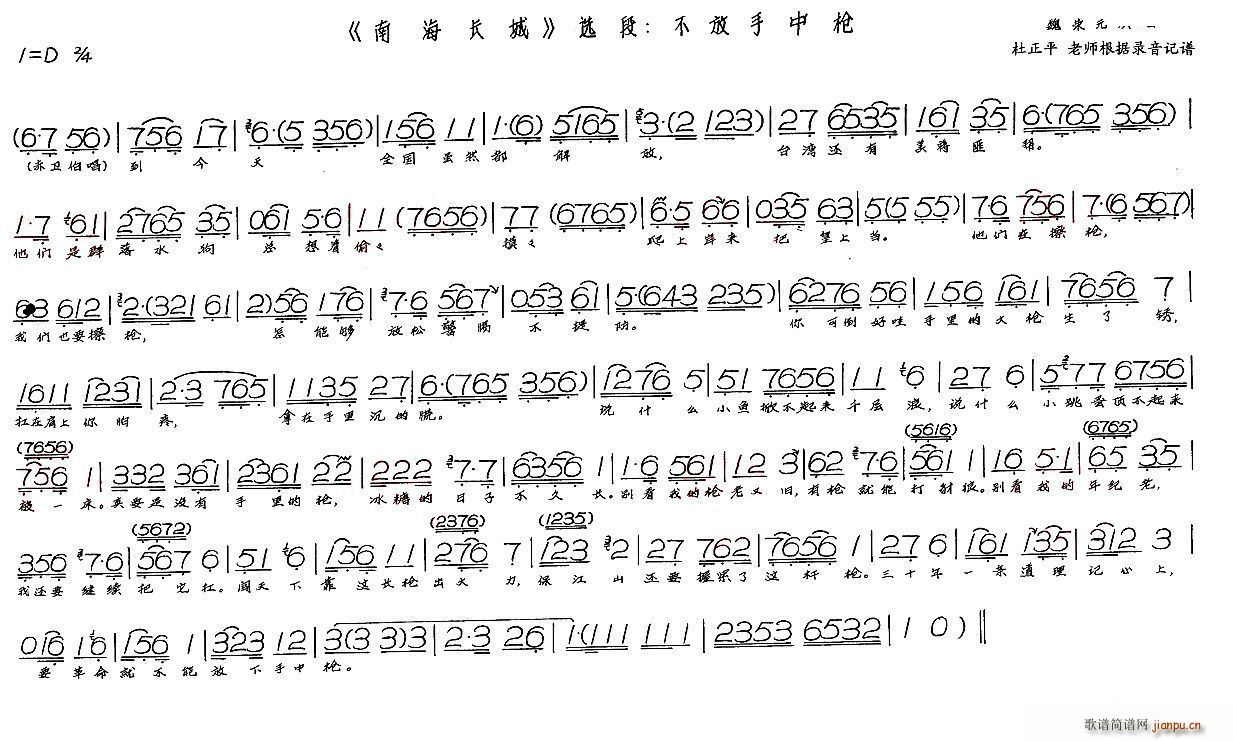 《南海长城》选段:不放手中枪
1=D 2/4
魏荣元
杜正平 老师根据录音记谱
(6·7 56) | 756 17 | 6·(5 356) | 156 11 | 1·(6) 5165 | 3·(2 123) | 27 6535 | 161 35 | 6·(765 356) |
(赤卫伯唱) 到今天 全国虽然都解放, 台湾还有美蒋匪帮。
1·7 661 | 2765 35 | 061 5·6 | 11 (7656) | 77 (6765) | 6·5 66 | 035 63 | 5(5 55) | 76 756 | 7·(6 567) |
他们是群落水狗 总想着偷々 摸々 爬上岸来把望上当。 他们在擦枪,
63 612 | 2·(321 61 | 2)56 176 | 7·6 567 | 053 61 | 5·(643 235) | 6276 56 | 156 161 | 7656 7 |
我们也要擦枪, 怎能够放松警惕不提防。 你可倒好哇手里的火枪生了锈,
1611 1231 | 2·3 765 | 1135 27 | 6·(765 356) | 1276 5 | 51 7656 | 11 6 | 27 6 | 577 6756 |
扛在肩上你怕疼, 拿在手里沉的慌。 说什么小鱼掀不起来千层浪, 说什么小跳蚤顶不起来
(7656) (5616) (6765)
756 1 | 332 361 | 2361 22 | 222 7·7 | 6356 1 | 1·6 561 | 12 3 | 62 7·6 | 561 1 | 16 5·1 | 65 35 |
被一床。 要是没有手里的枪, 冰糖的日子不久长。 别看我的枪老又旧, 有枪就能打豺狼。 别看我的年纪老,
(5672) (2376) (1235)
356 7·6 | 567 6 | 51 6 | 156 11 | 276 7 | 123 2 | 27 762 | 7656 1 | 27 6 | 161 135 | 312 3 |
我还要继续把它扛。 闯天下靠这长枪出大力, 保江山还要握紧了这杆枪。 三十年一条道理记心上,
016 16 | 156 1 | 323 12 | 3(3 33)3 | 2·3 26 | 1·(111 111 | 2353 6532 | 1 0) ‖
要革命就不能放下手中枪。
歌谱简谱网 jianpu.cn